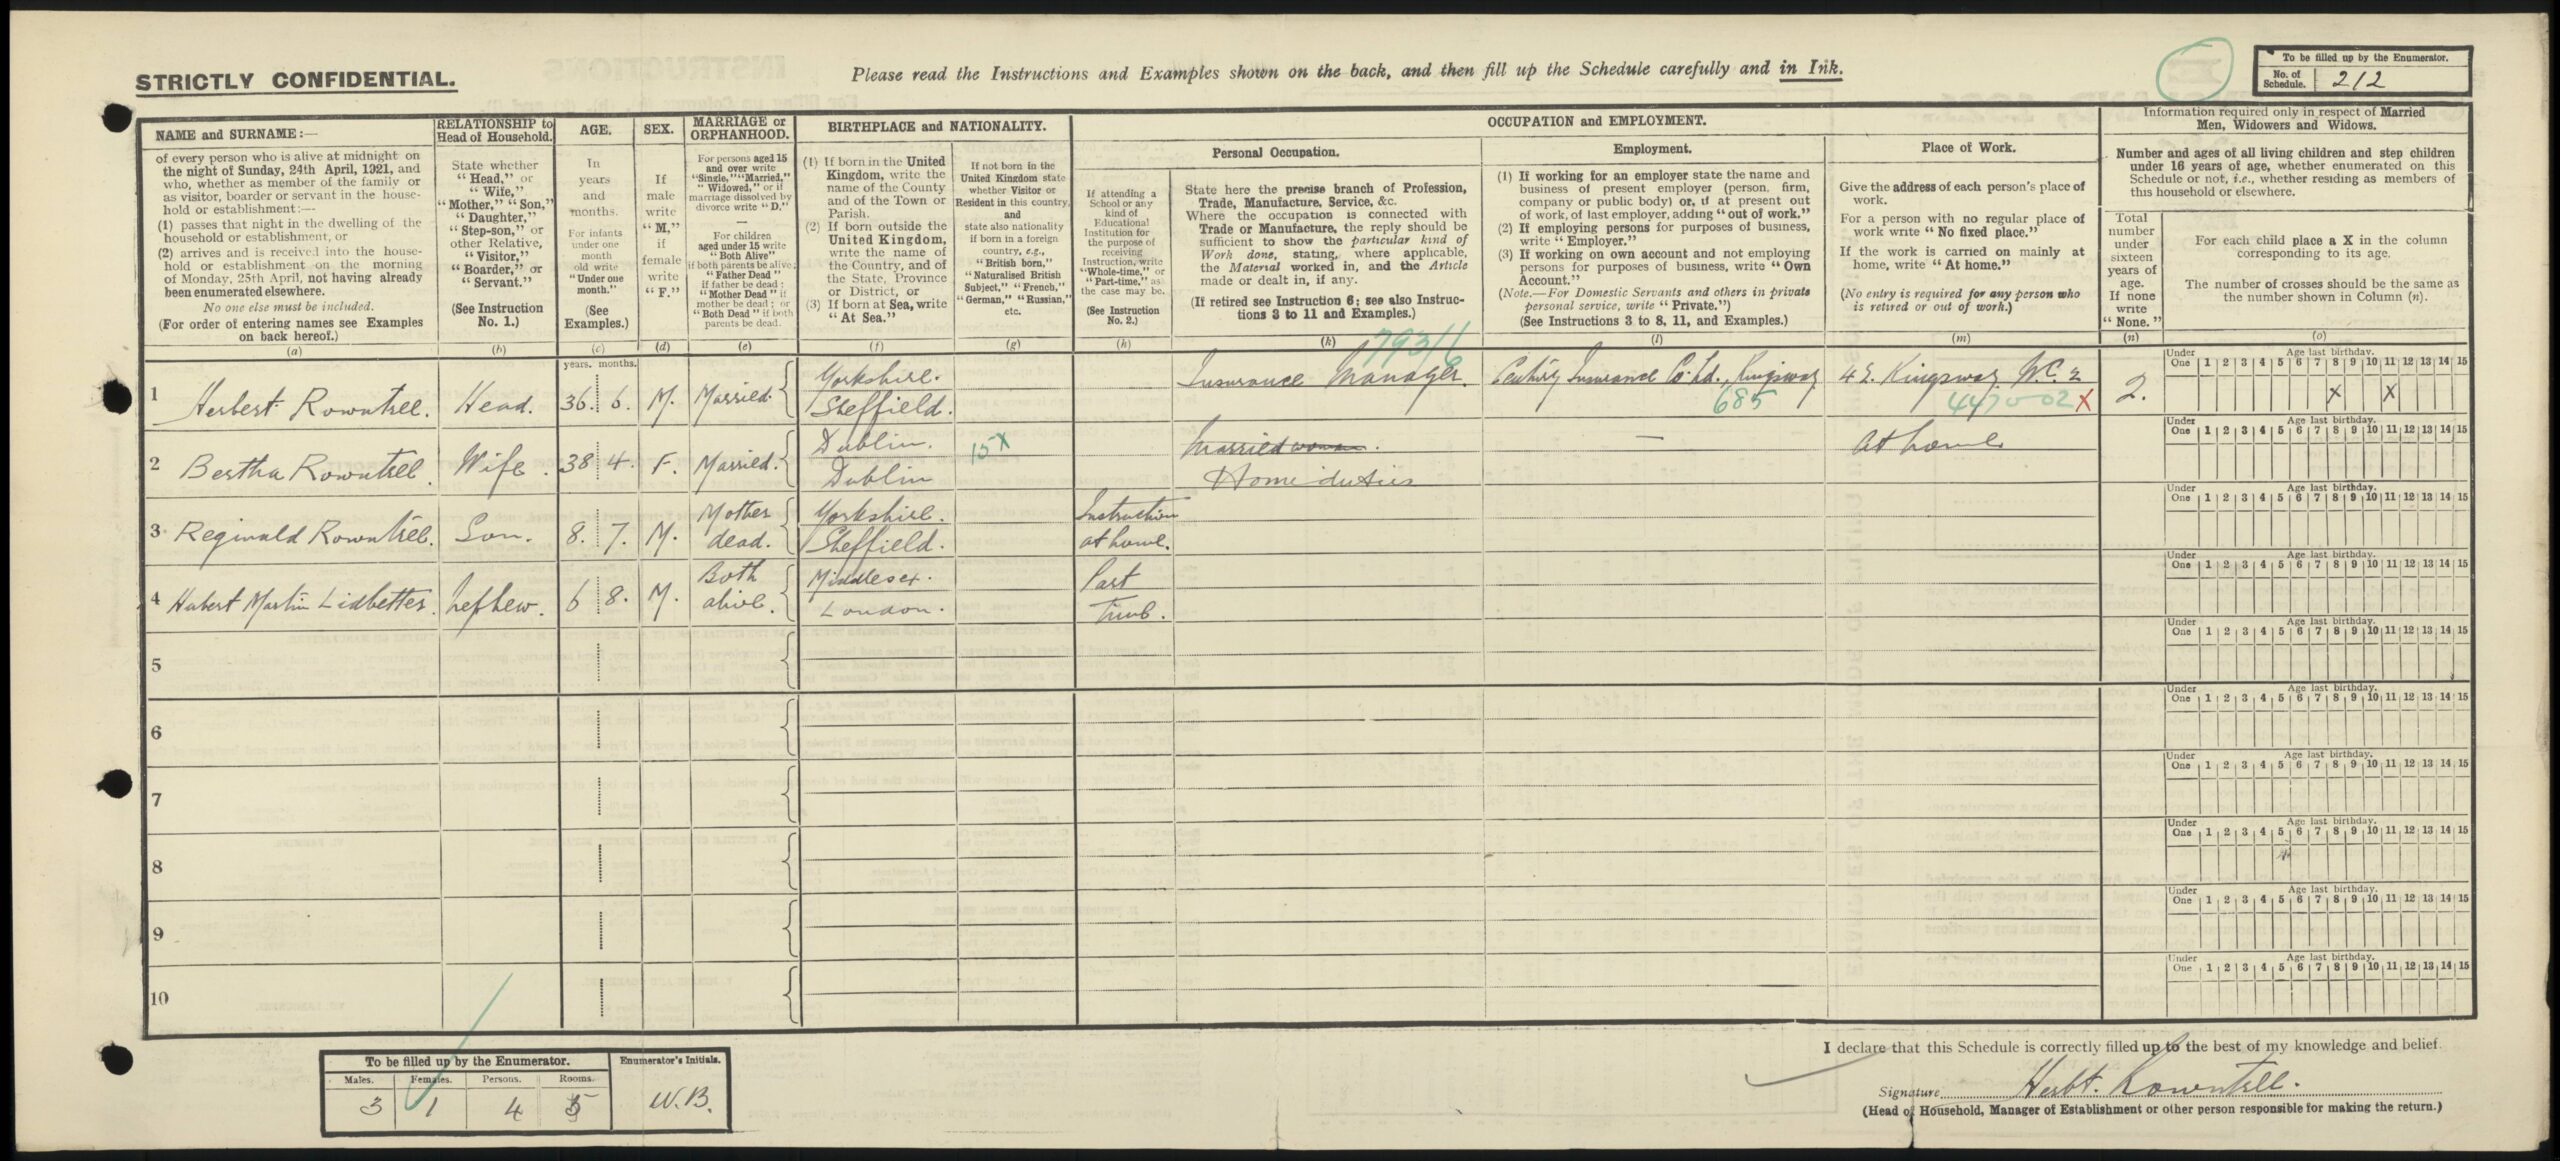 STRICTLY CONFIDENTIAL.
Please read the Instructions and Examples shown on the back, and then fill up the Schedule carefully and in Ink.
To be filled up by the Enumerator.
No. of Schedule. 212
NAME and SURNAME:—
of every person who is alive at midnight on
the night of Sunday, 24th April, 1921, and
who, whether as member of the family or
as visitor, boarder or servant in the house-
hold or establishment:—
(1) passes that night in the dwelling of the
household or establishment, or
(2) arrives and is received into the house-
hold or establishment on the morning
of Monday, 25th April, not having already
been enumerated elsewhere.
No one else must be included.
(For order of entering names see Examples
on back hereof.)
(a)
RELATIONSHIP to
Head of Household.
State whether
"Head," or
"Wife,"
"Mother," "Son,"
"Daughter,"
"Step-son," or
other Relative,
"Visitor,"
"Boarder," or
"Servant."
(See Instruction
No. 1.)
(b)
AGE.
In
years
and
months.
For infants
under one
month
old write
"Under one
month."
(See
Examples.)
(c)
years. months.
SEX.
If
male
write
"M,"
if
female
write
"F."
(d)
MARRIAGE or
ORPHANHOOD.
For persons aged 15
and over write
"Single," "Married,"
"Widowed," or if
marriage dissolved by
divorce write "D."
—
For children
aged under 15 write
"Both Alive"
if both parents be alive;
"Father Dead"
if father be dead;
"Mother Dead" if
mother be dead; or
"Both Dead" if both
parents be dead.
(e)
BIRTHPLACE and NATIONALITY.
(1) If born in the United
Kingdom, write the
name of the County
and of the Town or
Parish.
(2) If born outside the
United Kingdom,
write the name of
the Country, and of
the State, Province
or District, or
(3) If born at Sea, write
"At Sea."
(f)
If not born in the
United Kingdom state
whether Visitor or
Resident in this country,
and
state also nationality
if born in a foreign
country, e.g.,
"British born,"
"Naturalised British
Subject," "French,"
"German," "Russian,"
etc.
(g)
OCCUPATION and EMPLOYMENT.
If attending a
School or any
kind of
Educational
Institution for
the purpose of
receiving
Instruction, write
"Whole-time," or
"Part-time," as
the case may be.
(See Instruction
No. 2.)
(h)
Personal Occupation.
State here the precise branch of Profession,
Trade, Manufacture, Service, &c.
Where the occupation is connected with
Trade or Manufacture, the reply should be
sufficient to show the particular kind of
Work done, stating, where applicable,
the Material worked in, and the Article
made or dealt in, if any.
(If retired see Instruction 6; see also Instruc-
tions 3 to 11 and Examples.)
(k)
Employment.
(1) If working for an employer state the name and
business of present employer (person, firm,
company or public body) or, if at present out
of work, of last employer, adding "out of work."
(2) If employing persons for purposes of business,
write "Employer."
(3) If working on own account and not employing
persons for purposes of business, write "Own
Account."
(Note.—For Domestic Servants and others in private
personal service, write "Private.")
(See Instructions 3 to 8, 11, and Examples.)
(l)
Place of Work.
Give the address of each person's place of
work.
For a person with no regular place of
work write "No fixed place."
If the work is carried on mainly at
home, write "At home."
(No entry is required for any person who
is retired or out of work.)
(m)
Information required only in respect of Married
Men, Widowers and Widows.
Number and ages of all living children and step children
under 16 years of age, whether enumerated on this
Schedule or not, i.e., whether residing as members of
this household or elsewhere.
Total
number
under
sixteen
years of
age.
If none
write
"None."
(n)
For each child place a X in the column
corresponding to its age.
The number of crosses should be the same as
the number shown in Column (n).
(o)
Under One Age last birthday. 1 2 3 4 5 6 7 8 9 10 11 12 13 14 15
1 Herbert Rowntree. Head. 36. 6. M. Married. Yorkshire. Sheffield. Insurance Manager. 793/6 Century Insurance Co. Ld., Kingsway 685 42. Kingsway W.C.2 447002 X 2. X X
Under One Age last birthday. 1 2 3 4 5 6 7 8 9 10 11 12 13 14 15
2 Bertha Rowntree. Wife. 38 4. F. Married. Dublin. Dublin 15X Married woman. Home duties — At home
Under One Age last birthday. 1 2 3 4 5 6 7 8 9 10 11 12 13 14 15
3 Reginald Rowntree. Son. 8. 7. M. Mother dead. Yorkshire. Sheffield. Instruction at home.
Under One Age last birthday. 1 2 3 4 5 6 7 8 9 10 11 12 13 14 15
4 Hubert Martin Lidbetter. Nephew. 6 8. M. Both alive. Middlesex. London. Part Time.
Under One Age last birthday. 1 2 3 4 5 6 7 8 9 10 11 12 13 14 15
5
Under One Age last birthday. 1 2 3 4 5 6 7 8 9 10 11 12 13 14 15
6
Under One Age last birthday. 1 2 3 4 5 6 7 8 9 10 11 12 13 14 15
7
Under One Age last birthday. 1 2 3 4 5 6 7 8 9 10 11 12 13 14 15
8
Under One Age last birthday. 1 2 3 4 5 6 7 8 9 10 11 12 13 14 15
9
Under One Age last birthday. 1 2 3 4 5 6 7 8 9 10 11 12 13 14 15
10
To be filled up by the Enumerator.
Males. Females. Persons. Rooms.
3 1 4 5
Enumerator's Initials.
W.B.
I declare that this Schedule is correctly filled up to the best of my knowledge and belief.
Signature Herbt. Rowntree.
(Head of Household, Manager of Establishment or other person responsible for making the return.)